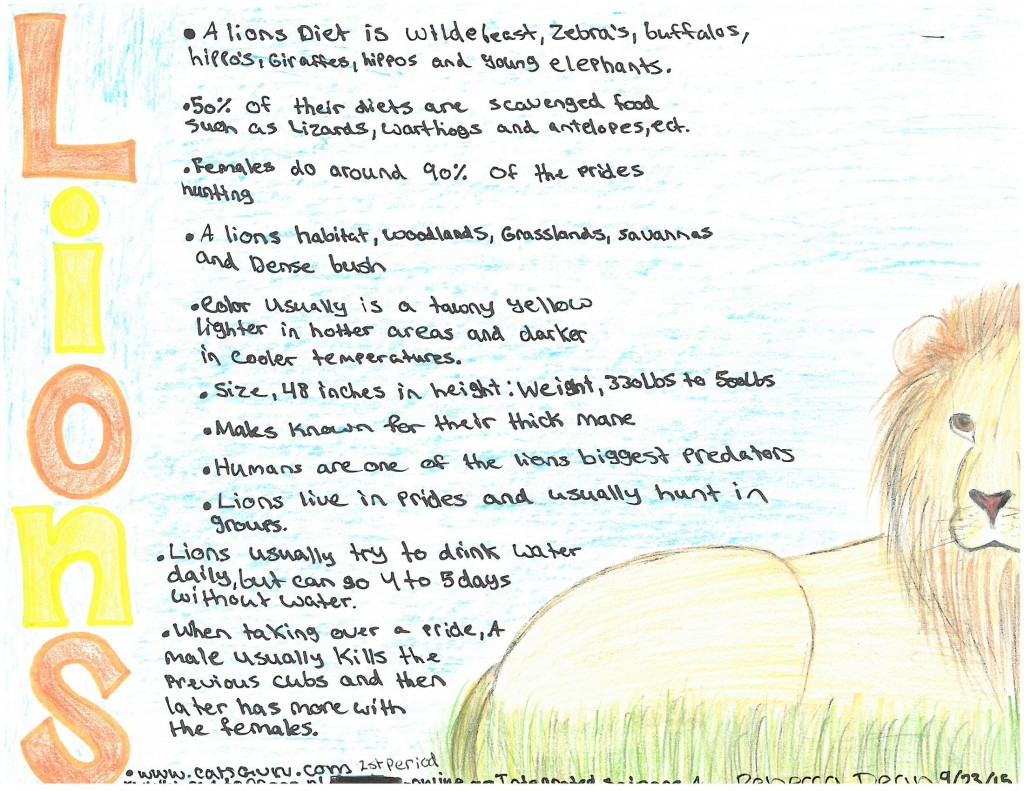 Lions
• A lions Diet is wildebeast, Zebra's, buffalos,
hippo's, Giraffes, hippos and young elephants.
• 50% of their diets are scavenged food
such as Lizards, warthogs and antelopes, ect.
• Females do around 90% of the prides
hunting
• A lions habitat, woodlands, Grasslands, savannas
and Dense bush
• Color usually is a tawny yellow
lighter in hotter areas and darker
in cooler temperatures.
• Size, 48 inches in height: Weight, 330lbs to 500lbs
• Males known for their thick mane
• Humans are one of the lions biggest predators
• Lions live in prides and usually hunt in
groups.
• Lions usually try to drink water
daily, but can go 4 to 5 days
without water.
• When taking over a pride, A
male usually kills the
previous cubs and then
later has more with
the females.
• www.catsGuru.com 1st Period
Integrated Science 9/23/15